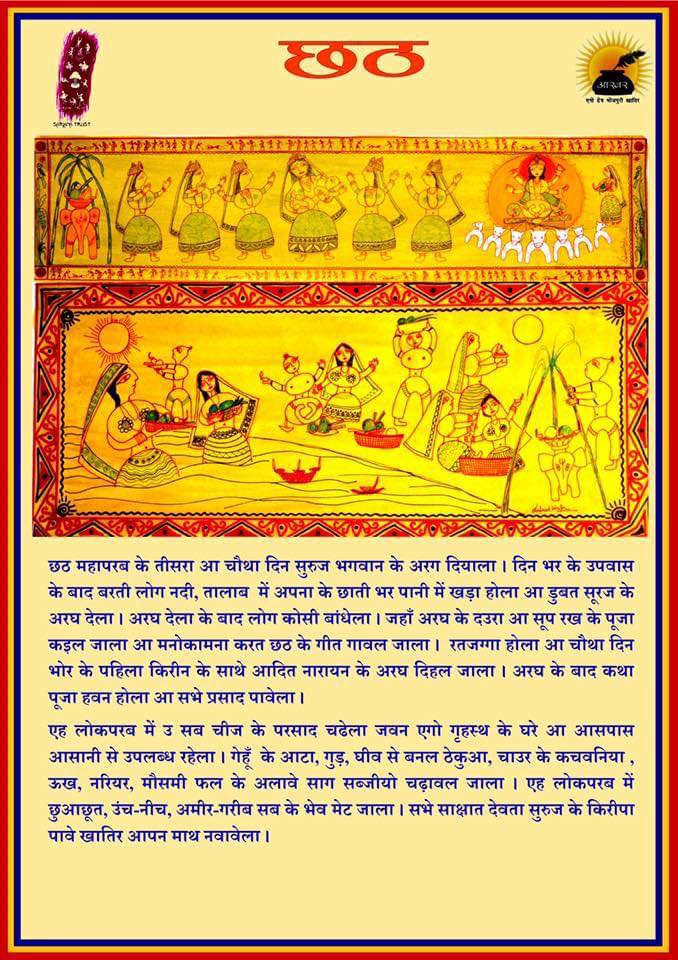 छठ
SARJAN TRUST
आखर
एगो डेग भोजपुरी खातिर
छठ महापरब के तीसरा आ चौथा दिन सुरुज भगवान के अरग दियाला । दिन भर के उपवास
के बाद बरती लोग नदी, तालाब में अपना के छाती भर पानी में खड़ा होला आ डुबत सूरज के
अरघ देला । अरघ देला के बाद लोग कोसी बांधेला । जहाँ अरघ के दउरा आ सूप रख के पूजा
कइल जाला आ मनोकामना करत छठ के गीत गावल जाला । रतजग्गा होला आ चौथा दिन
भोर के पहिला किरीन के साथे आदित नारायन के अरघ दिहल जाला । अरघ के बाद कथा
पूजा हवन होला आ सभे प्रसाद पावेला ।
एह लोकपरब में उ सब चीज के परसाद चढेला जवन एगो गृहस्थ के घरे आ आसपास
आसानी से उपलब्ध रहेला । गेहूँ के आटा, गुड़, घीव से बनल ठेकुआ, चाउर के कचवनिया ,
ऊख, नरियर, मौसमी फल के अलावे साग सब्जीयो चढ़ावल जाला । एह लोकपरब में
छुआछूत, उंच-नीच, अमीर-गरीब सब के भेव मेट जाला । सभे साक्षात देवता सुरुज के किरीपा
पावे खातिर आपन माथ नवावेला ।